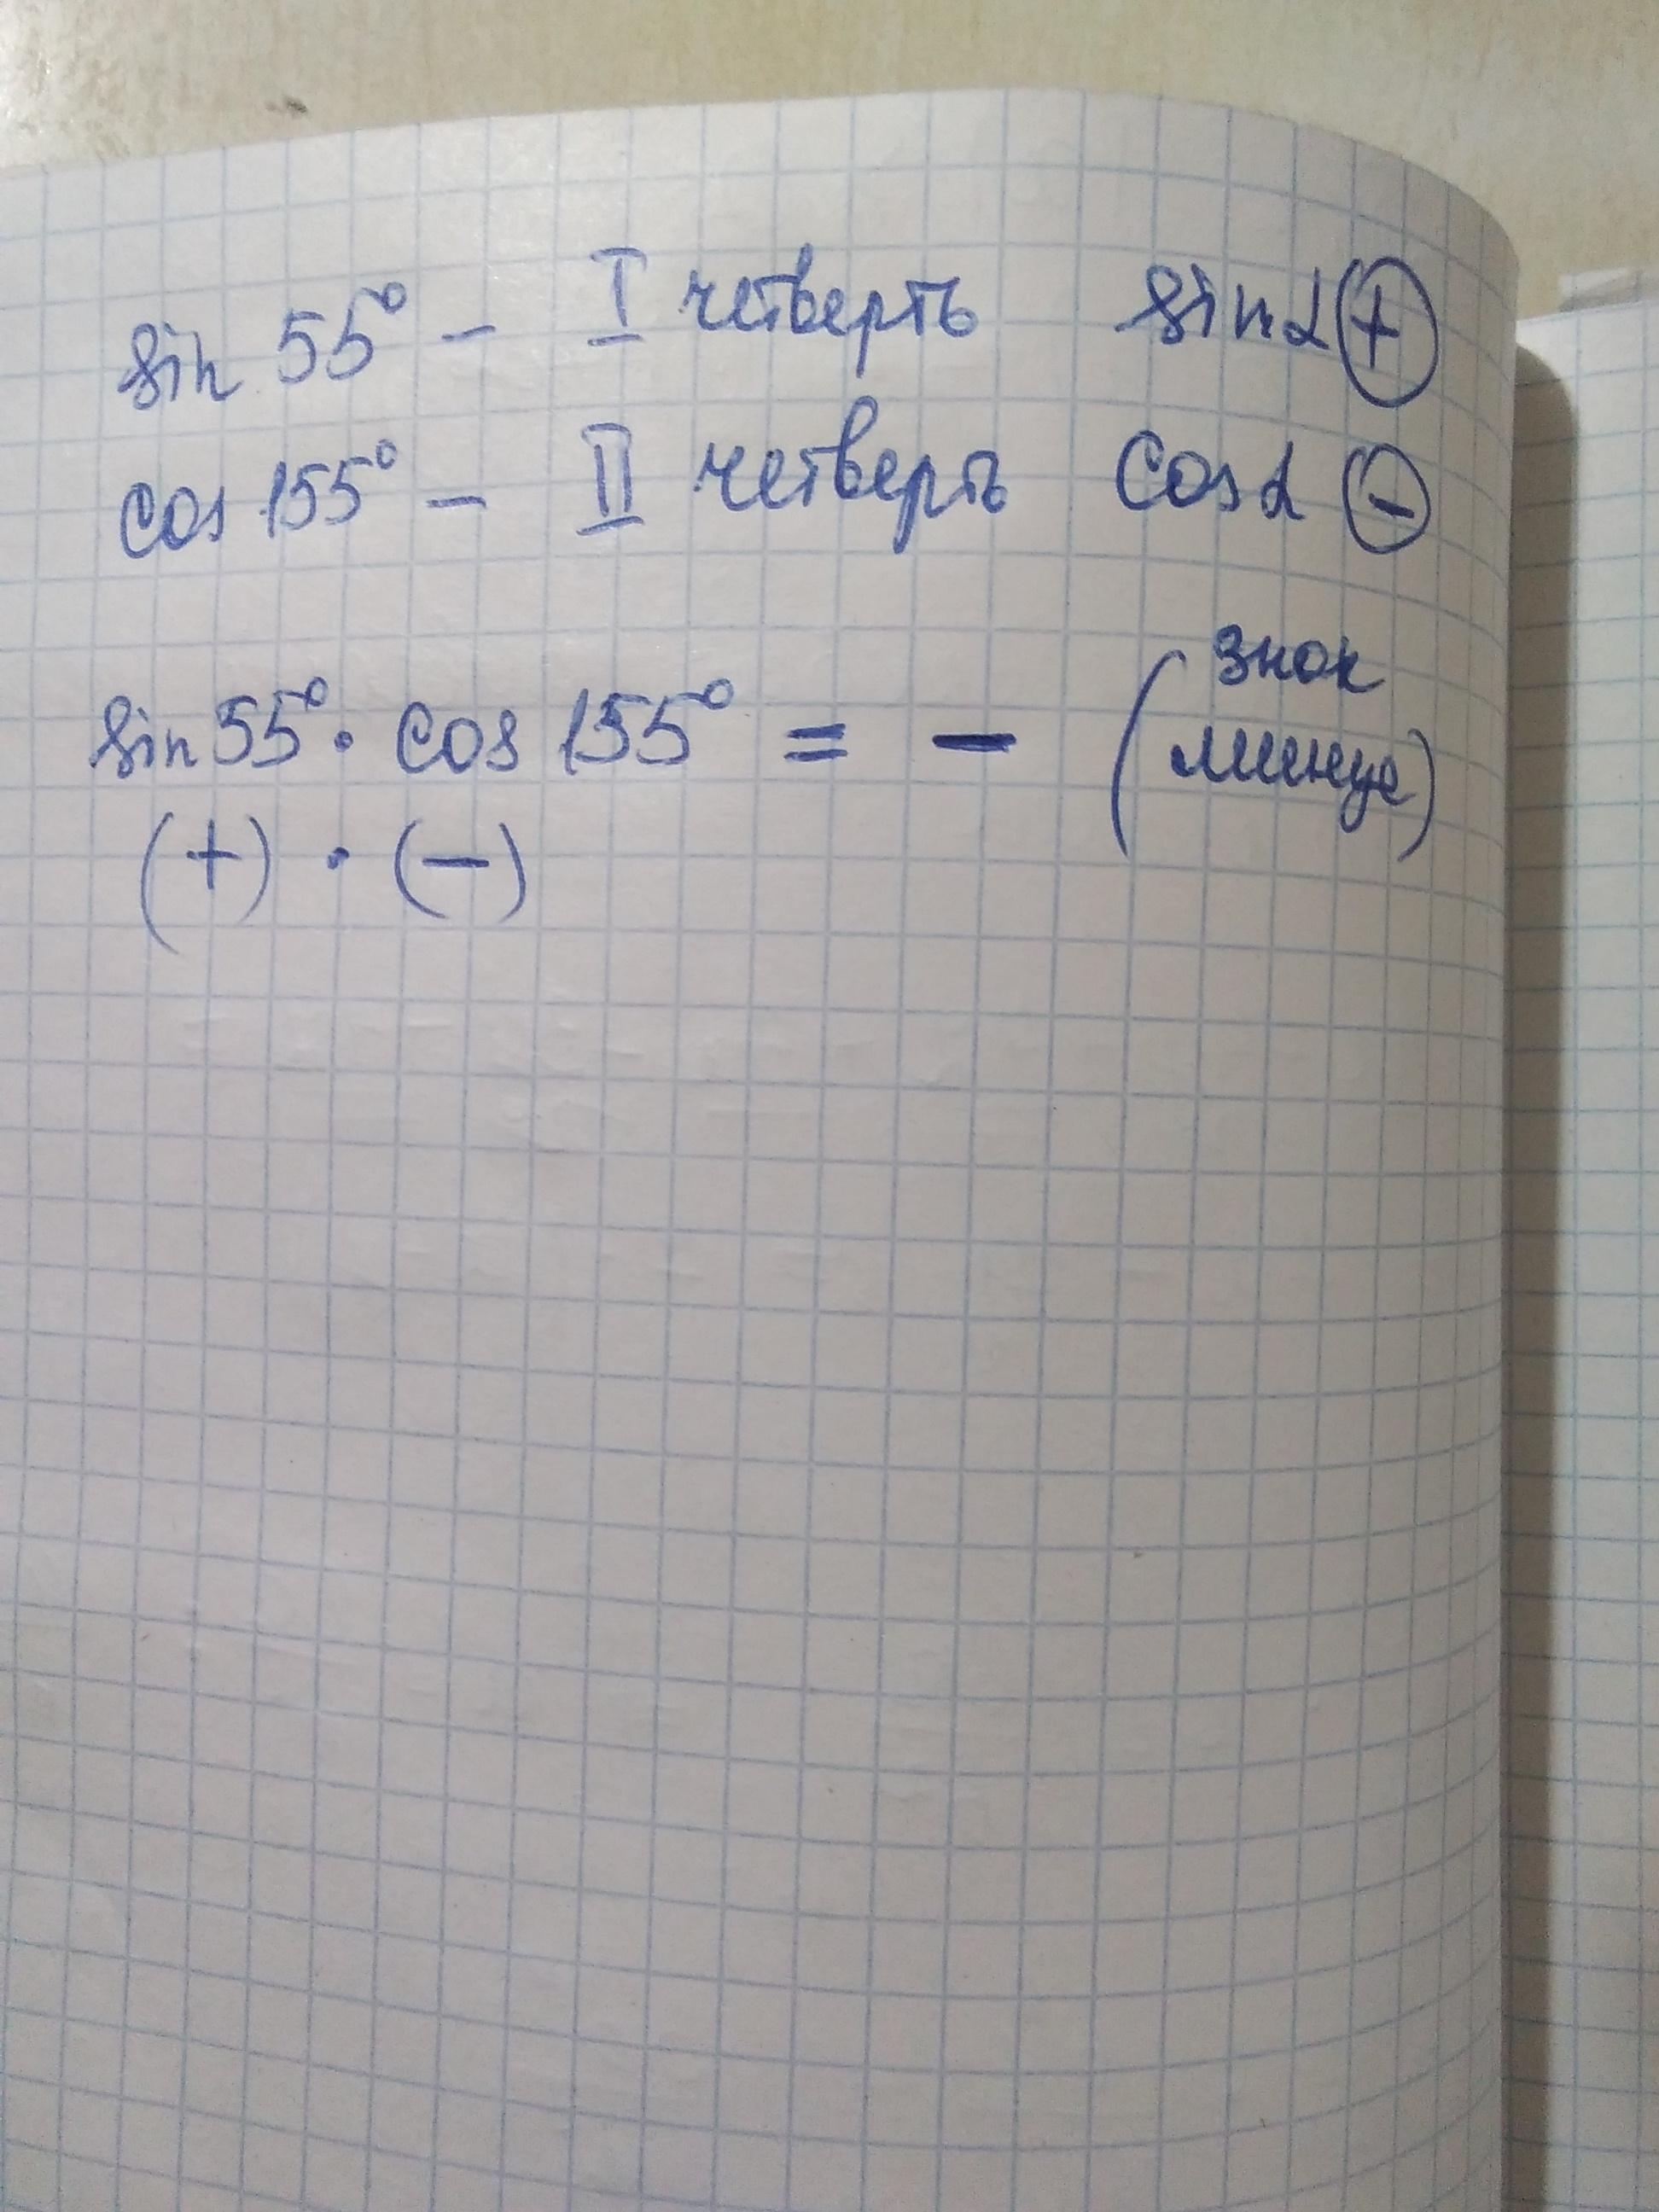 sin 55° – I четверть sinα (+)
cos 155° – II четверть cosα (-)
sin 55° · cos 155° = – (знак минус)
(+) · (–)